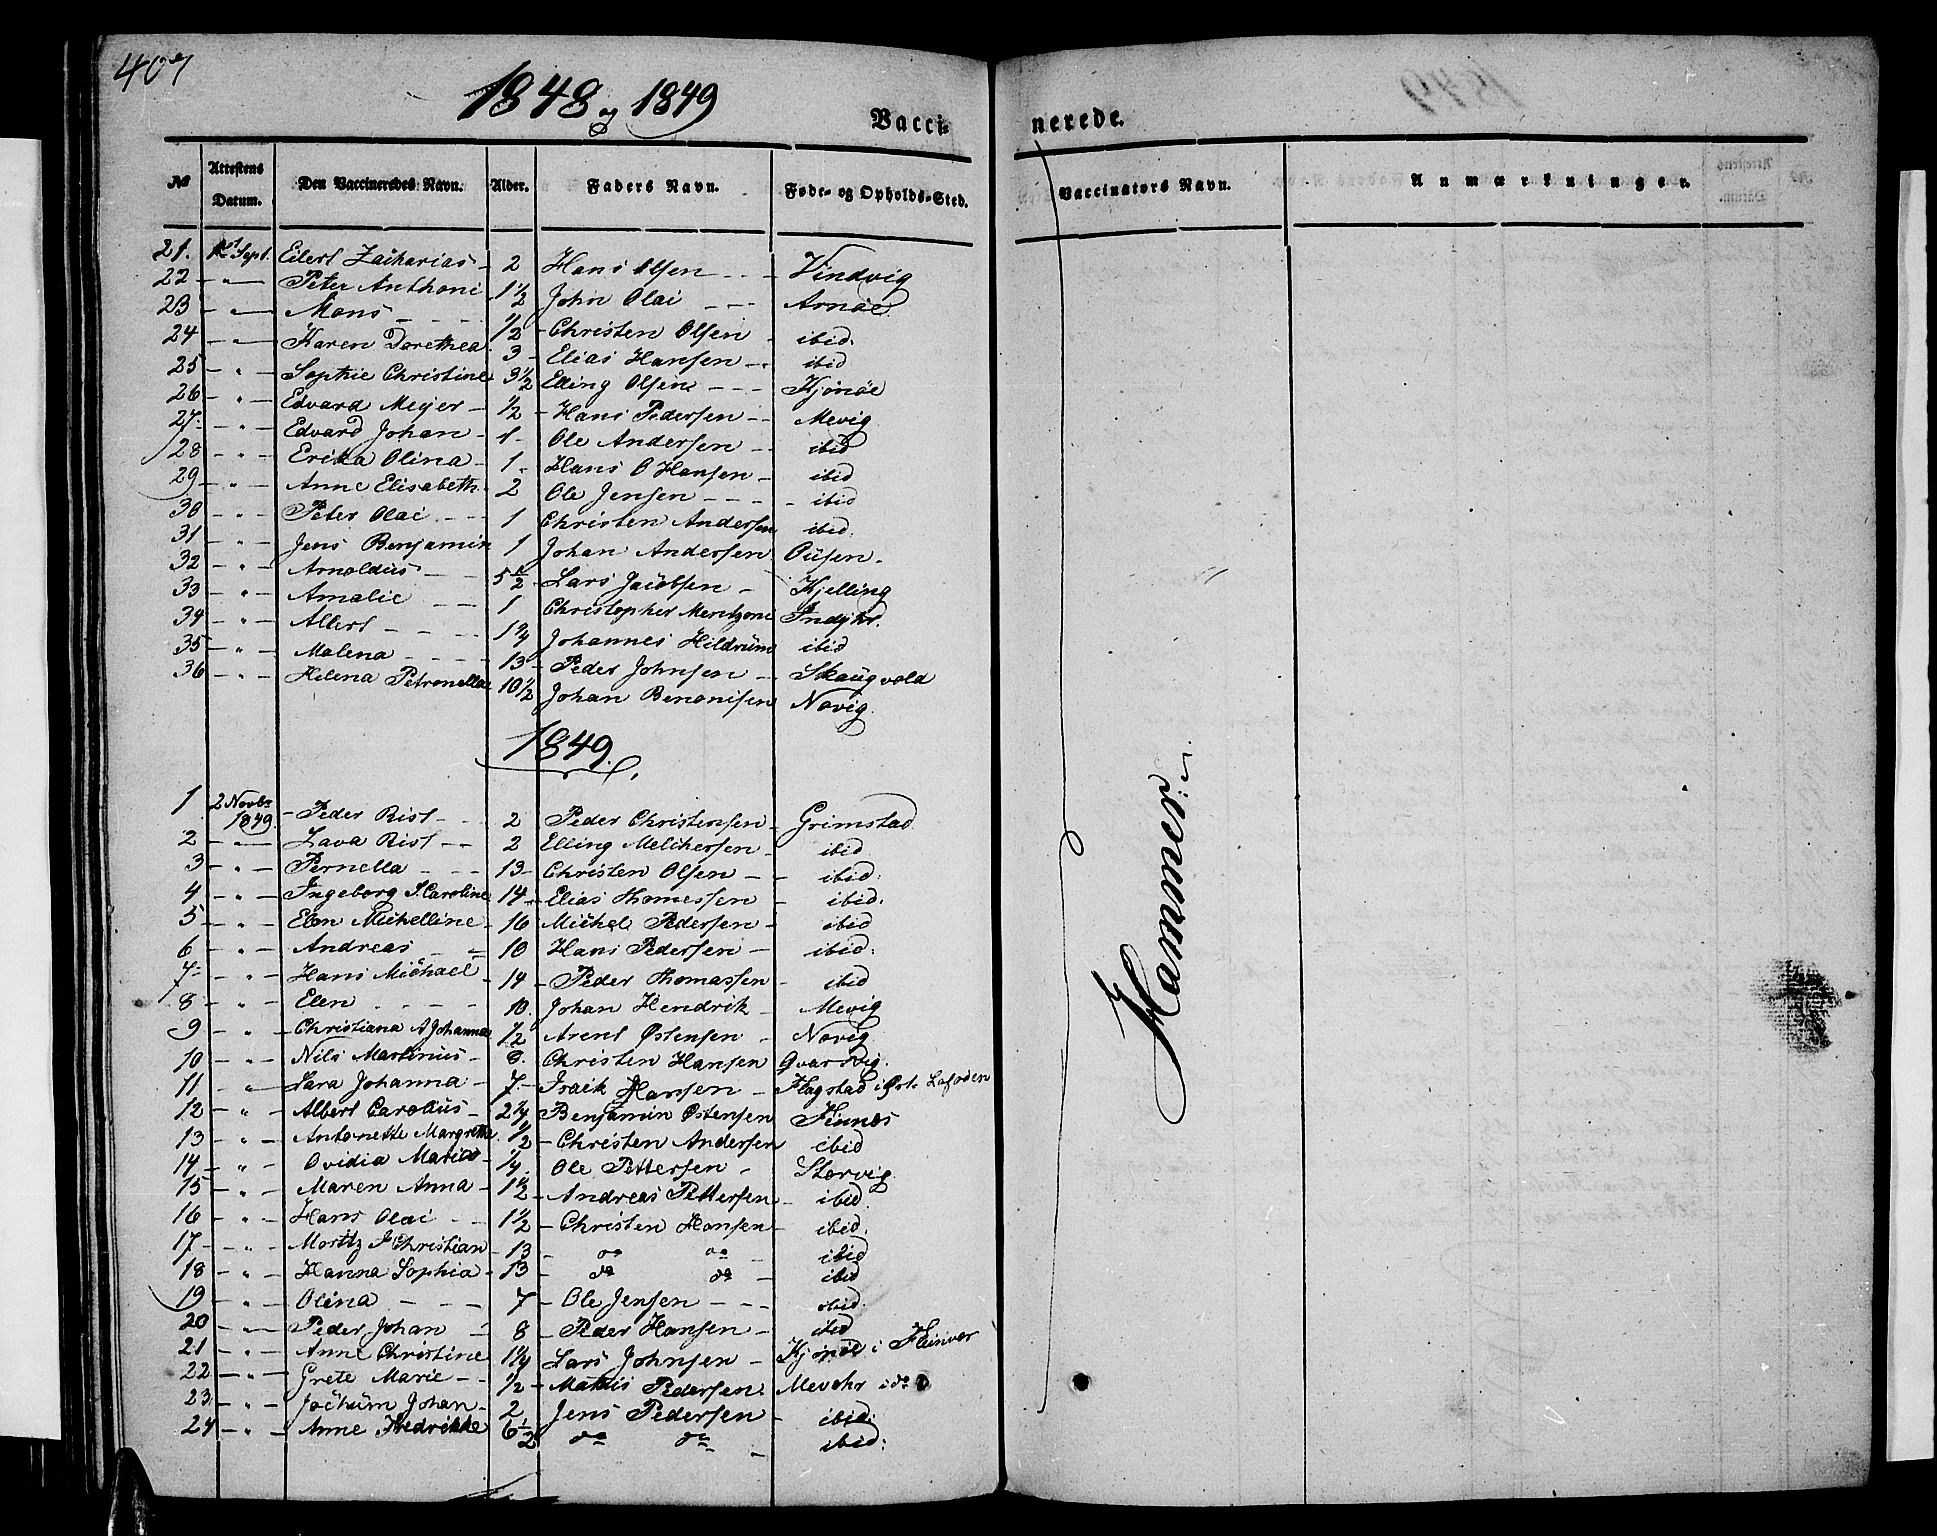 407
1848 og 1849
Vacci- nerede.
No Attestens Datum. Den Vaccineredes Navn. Alder. Faders Navn. Føde- og Opholds-Sted. Vaccinators Navn. Anmærkninger.
21. 1ste Sept. Eilert Zacharias - 2 Hans Olsen - - - Vindvig
22 - " - Peter Anthoni 1 1/2 John Olai - - - Arnöe
23 - " - Mons - - - - 1/2 - Christen Olsen - ibid.
24 - " - Karen Dorethea 3 - Elias Hansen - - ibid
25 - " - Sophie Christine 3 1/2 Elling Olsen - - - Kjönöe
26 - " - Edvard Meyer - 1/2 - Hans Pedersen - Mevig
27 - " - Edvard Johan - 1 - Ole Andersen - - ibid
28 - " - Erika Olina - 1 - Hans O Hansen - ibid
29 - " - Anne Elisabeth - 2 Ole Jensen - - - - ibid
30 - " - Peter Olai - - - 1 Christen Andersen ibid
31 - " - Jens Benjamin 1 Johan Andersen Oüsen.
32 - " - Arnoldus - - 5 1/2 - Lars Jacobsen - Kjelling
33 - " - Amalie - - 1 Christopher Mentzoni Indyhr.
34 - " - Albert - - - 1 3/4 Johannes Hildrüm ibid
35 - " - Malena - - - 13 - Peder Johnsen - - Skaugvold
36 - " - Helena Petronella 10 1/2 Johan Benonisen Novig.
1849.
1 2 Novbr 1849. - Peder Rist - - - 2 Peder Christensen - Grimstad
2 - " - Lava Rist - - 2 Elling Melchersen - ibid
3 - " - Pernella - - - 13 - Christen Olsen - - ibid:
4 - " - Ingeborg J. Caroline 14 - Elias Thomessen - ibid:
5 - " - Elen Michelline - 16 Michel Pedersen - ibid
6 - " - Andreas - - 10 Hans Pedersen - ibid:
7 - " - Hans Michael - 14 - Peder Thomassen - ibid
8 - " - Elen - - - - 10. Johan Hendrik - Mevig
9 - " - Christiana A Johanna 1/2 - Arent Østensen - Novig
10 - " - Nils Martinus - Christen Hansen Qvarvig.
11 - " - Sara Johanna - 7 - Isaik Hansen - Flagstad i Øst Lofoden
12 - " - Albert Carolius - 2 3/4 Benjamin Østensen Finnes
13 - " - Antonette Margrethe 1/2 - Christen Andersen ibid
14 - " - Ovidia Maria - 1/4. Ole Pettersen - Storvig
15 - " - Maren Anna - 1 1/2 - Andreas Pettersen - ibid
16 - " - Hans Olai - - 1 1/2 - Christen Hansen - ibid:
17 - " - Moritz J Christian - 13 - do do - ibid
18 - " - Hanna Sophia - 13 - do do - ibid
19 - " - Olina - - - 7 - Ole Jensen - - - ibid
20 - " - Peder Johan - 8 - Peder Hansen - ibid
21 - " - Anne Christine 1 1/4 Lars Johnsen - Kjönöe i Fleinvær
22 - " - Grete Marie - - 1/2 - Mathis Pedersen. Mevær i do
23 - " - Jöchüm Johan - 2 Jens Pedersen - ibid:
24 - " - Anne Fredrikke 6 1/2 do do - ibid:
Hammer